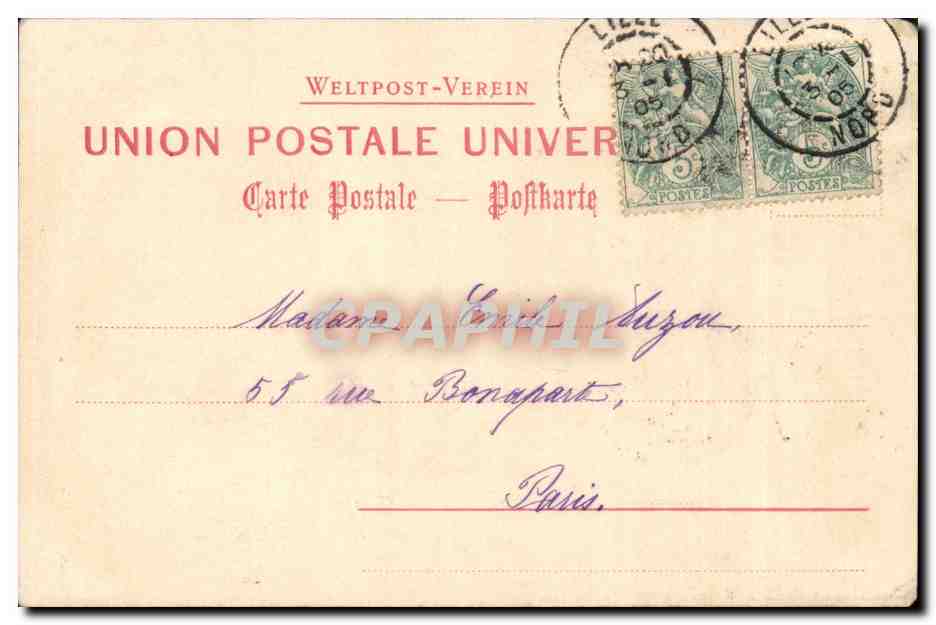 WELTPOST-VEREIN
UNION POSTALE UNIVER
Carte Postale — Postkarte
LILLE
05
NORD
5c
POSTES
LILLE
05
NORD
5c
POSTES
CPAPHIL
Madame Emile Auzou,
55 rue Bonaparte,
Paris.